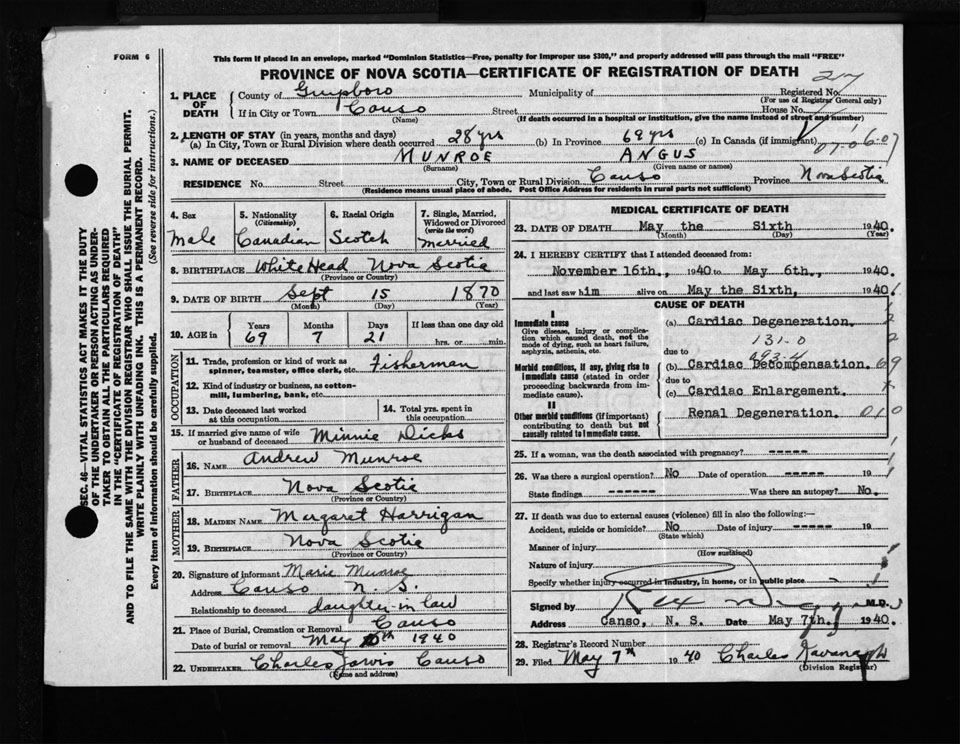 FORM 6
This form if placed in an envelope, marked "Dominion Statistics—Free, penalty for improper use $300," and properly addressed will pass through the mail "FREE"
PROVINCE OF NOVA SCOTIA—CERTIFICATE OF REGISTRATION OF DEATH
1. PLACE OF DEATH
County of Guysboro Municipality of Registered No. 217
(For use of Registrar General only)
If in City or Town Canso Street House No.
(Name) (If death occurred in a hospital or institution, give the name instead of street and number)
2. LENGTH OF STAY (in years, months and days)
(a) In City, Town or Rural Division where death occurred 28 yrs (b) In Province 69 yrs (c) In Canada (if immigrant)
3. NAME OF DECEASED MUNROE ANGUS
(Surname) (Given name or names)
RESIDENCE No. Street City, Town or Rural Division Canso Province Nova Scotia
(Residence means usual place of abode. Post Office Address for residents in rural parts not sufficient)
SEC. 46—VITAL STATISTICS ACT MAKES IT THE DUTY
OF THE UNDERTAKER OR PERSON ACTING AS UNDER-
TAKER TO OBTAIN ALL THE PARTICULARS REQUIRED
IN THE "CERTIFICATE OF REGISTRATION OF DEATH"
AND TO FILE THE SAME WITH THE DIVISION REGISTRAR WHO SHALL ISSUE THE BURIAL PERMIT.
WRITE PLAINLY WITH UNFADING INK. THIS IS A PERMANENT RECORD.
Every item of information should be carefully supplied. (See reverse side for instructions.)
4. Sex 5. Nationality (Citizenship) 6. Racial Origin 7. Single, Married, Widowed or Divorced (write the word)
Male Canadian Scotch Married
8. BIRTHPLACE White Head Nova Scotia
(Province or Country)
9. DATE OF BIRTH Sept 15 1870
(Month) (Day) (Year)
10. AGE in Years Months Days If less than one day old
69 7 21 hrs. or min.
OCCUPATION
11. Trade, profession or kind of work as spinner, teamster, office clerk, etc. Fisherman
12. Kind of industry or business, as cotton-mill, lumbering, bank, etc.
13. Date deceased last worked at this occupation 14. Total yrs. spent in this occupation
15. If married give name of wife or husband of deceased Minnie Dicks
FATHER
16. NAME Andrew Munroe
17. BIRTHPLACE Nova Scotia
(Province or Country)
MOTHER
18. MAIDEN NAME Margaret Harrigan
19. BIRTHPLACE Nova Scotia
(Province or Country)
20. Signature of informant Marie Munroe
Address Canso N S.
Relationship to deceased daughter in law
21. Place of Burial, Cremation or Removal Canso
Date of burial or removal May th 1940
22. UNDERTAKER Charles Jarvis Canso
(Name and address)
MEDICAL CERTIFICATE OF DEATH
23. DATE OF DEATH May the Sixth 1940.
(Month) (Day) (Year)
24. I HEREBY CERTIFY that I attended deceased from:
November 16th., 1940 to May 6th., 1940.
and last saw him alive on May the Sixth, 1940
CAUSE OF DEATH
I
Immediate cause
Give disease, injury or complication which caused death, not the mode of dying, such as heart failure, asphyxia, asthenia, etc.
(a) Cardiac Degeneration.
131.0
due to
493.4
Morbid conditions, if any, giving rise to immediate cause (stated in order proceeding backwards from immediate cause).
(b) Cardiac Decompensation.
due to
(c) Cardiac Enlargement.
II
Other morbid conditions (if important) contributing to death but not causally related to immediate cause.
Renal Degeneration.
25. If a woman, was the death associated with pregnancy? -----
26. Was there a surgical operation? No Date of operation ----- 19
State findings ------ Was there an autopsy? No.
27. If death was due to external causes (violence) fill in also the following:
Accident, suicide or homicide? No Date of injury ----- 19
(State which)
Manner of injury
(How sustained)
Nature of injury
Specify whether injury occurred in industry, in home, or in public place
Signed by M.D.
Address Canso, N. S. Date May 7th, 1940.
28. Registrar's Record Number
29. Filed May 7th 1940 Charles Kavanagh
(Division Registrar)